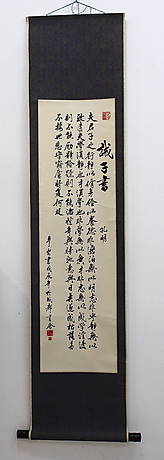 誡子書
孔明
夫君子之行靜以修身儉以養德非澹泊無以明志非寧靜無以
致遠夫學須靜也才須學也非學無以廣才非志無以成學淫漫
則不能勵精險躁則不能治性年與時馳意與日去遂成枯落多
不接世悲守窮廬將復何及